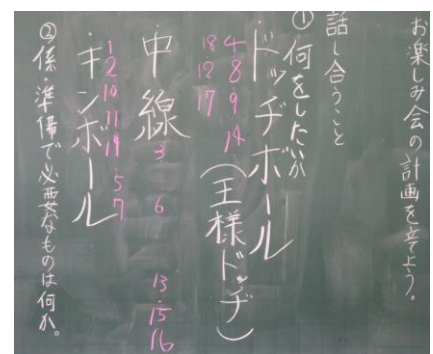 お楽しみ会の計画を立てよう。
話し合うこと
①何をしたいか
ドッヂボール(王様ドッヂ)
4 8 9 14
18 12 17
中線
3 6 13 15 16
キンボール
1 2 10 11 19 5 7
②係、準備で必要なものは何か。